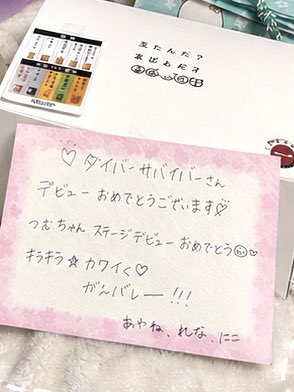 ♡ダイバーサバイバーさん
デビュー おめでとうございます♡
つむちゃん ステージデビュー おめでとう
キラキラ☆カワイく♡
がんバレー!!!
あやね、れな、にこ